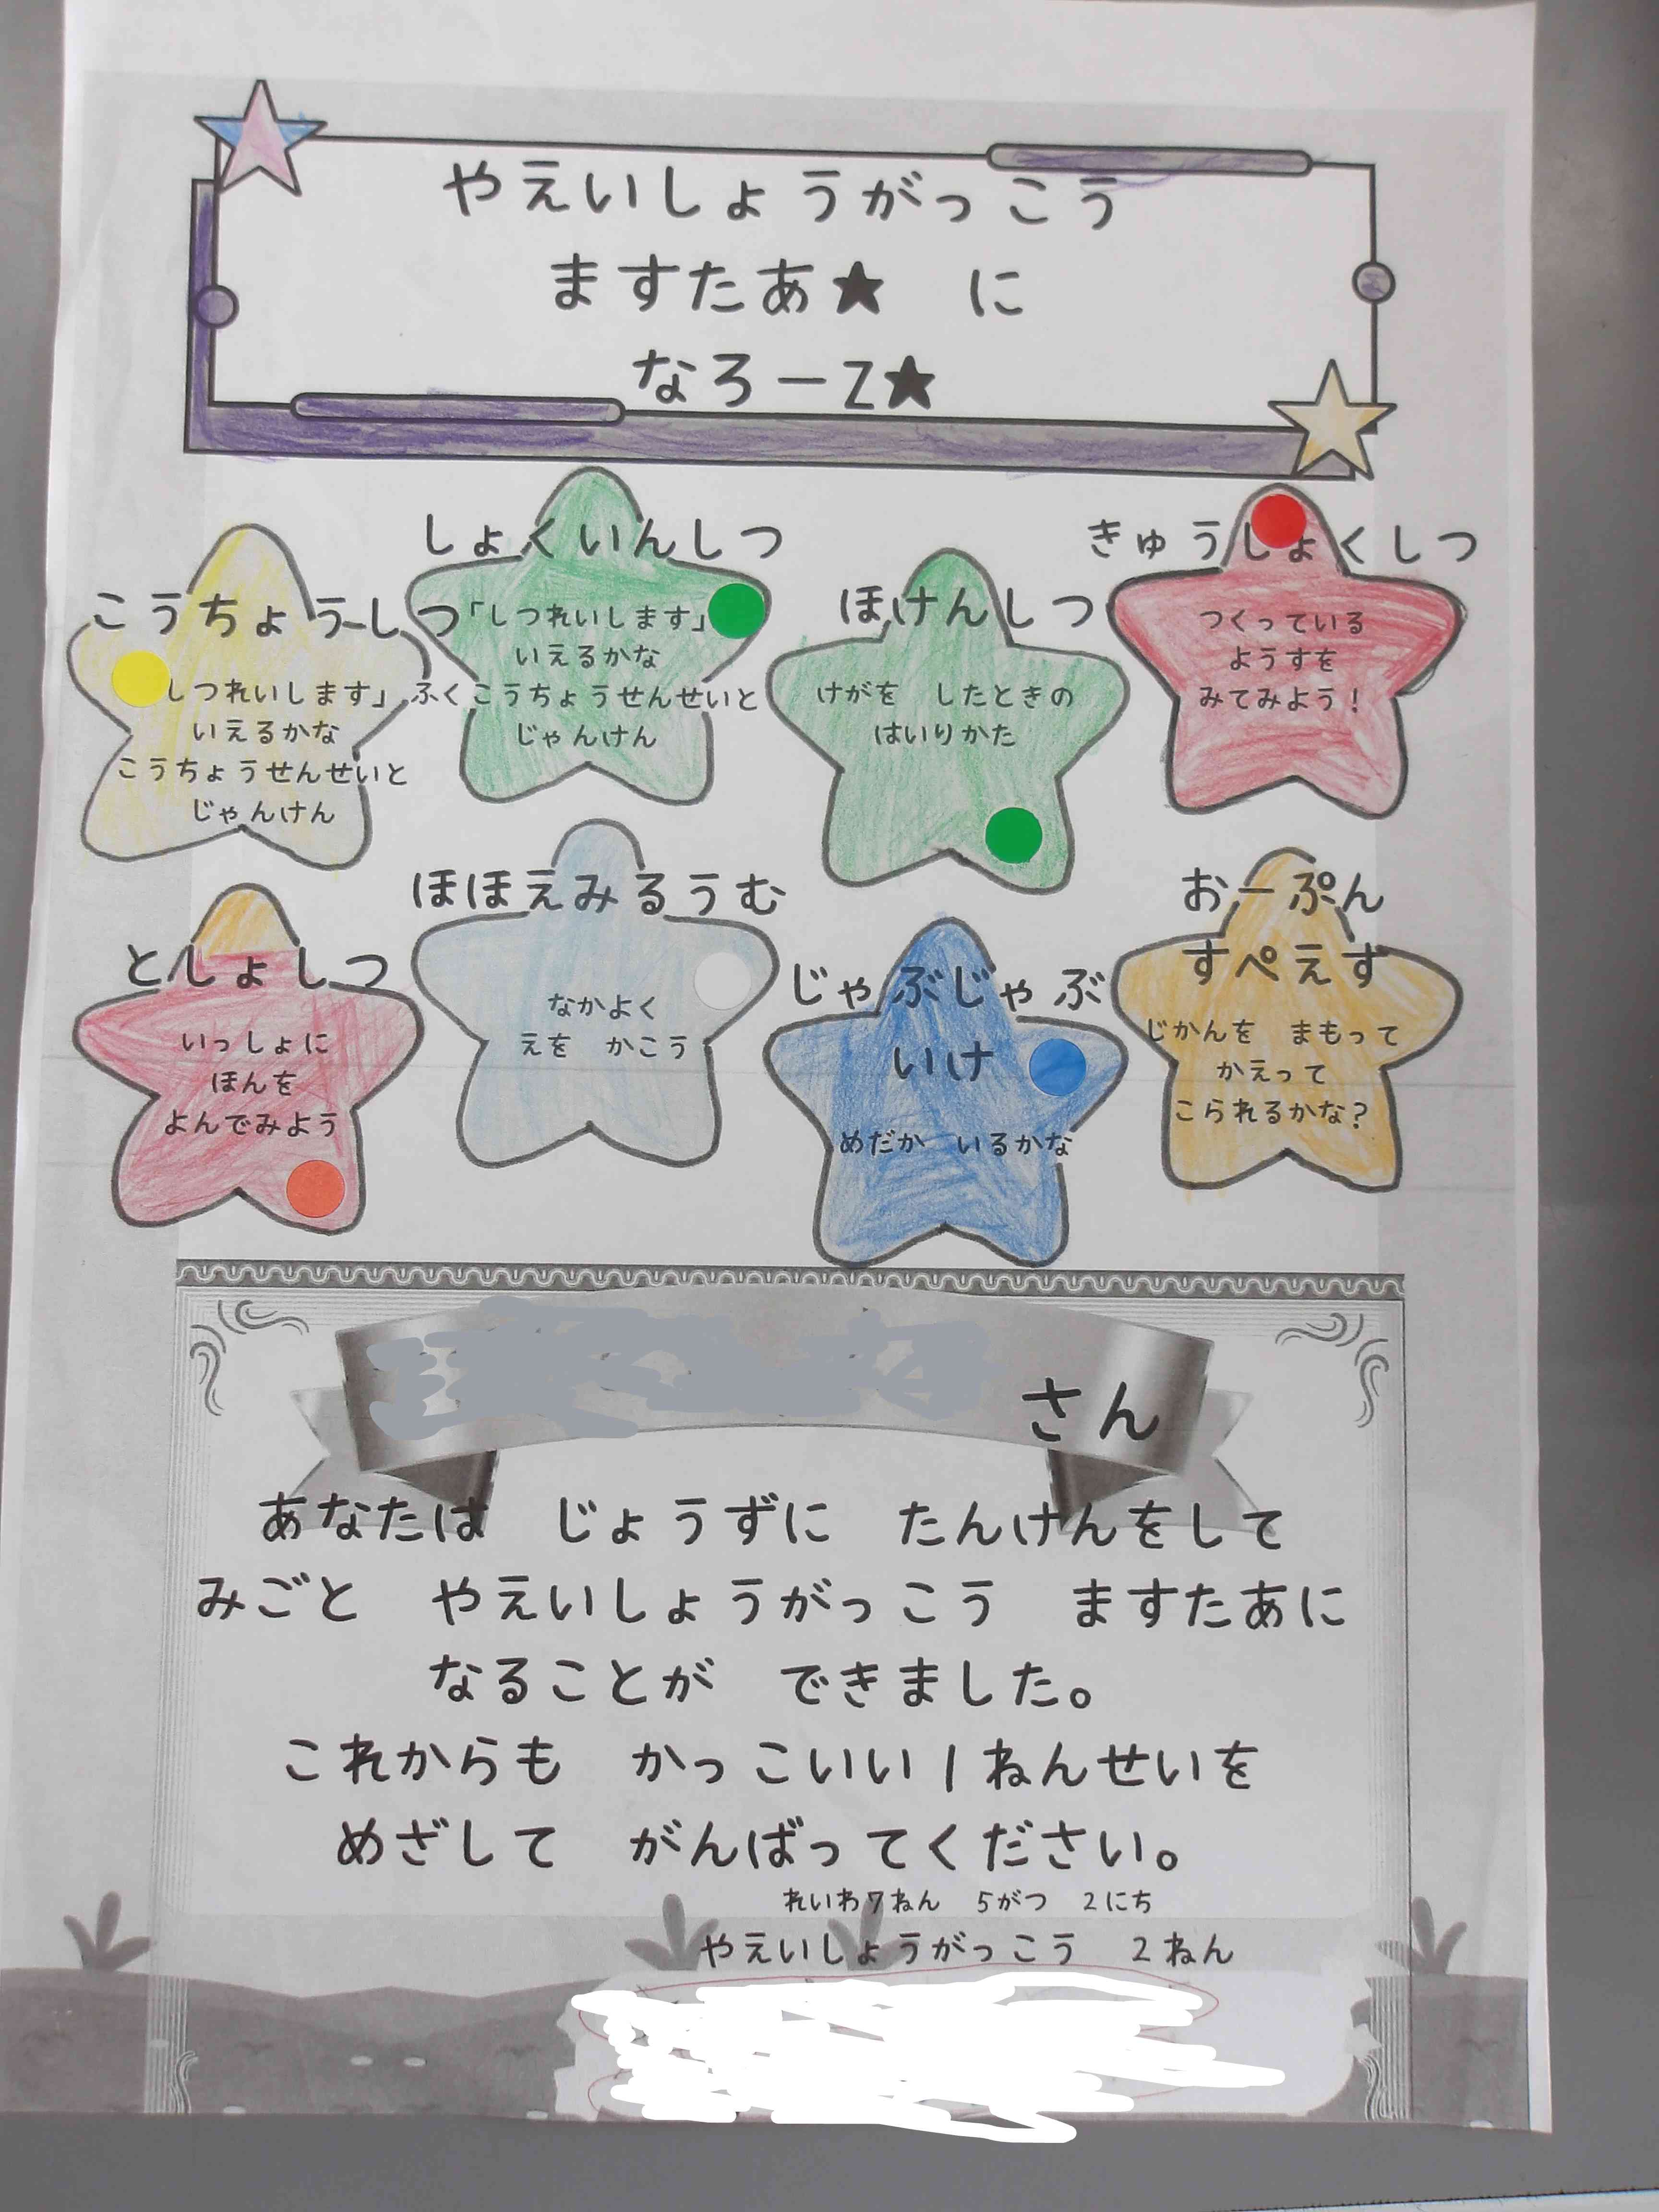 やえいしょうがっこう
ますたあ★ に
なろーZ★
こうちょうしつ
しつれいします」
いえるかな
こうちょうせんせいと
じゃんけん
しょくいんしつ
「しつれいします」
いえるかな
ふくこうちょうせんせいと
じゃんけん
ほけんしつ
けがを したときの
はいりかた
きゅうしょくしつ
つくっている
ようすを
みてみよう！
としょしつ
いっしょに
ほんを
よんでみよう
ほほえみるうむ
なかよく
えを かこう
じゃぶじゃぶ
いけ
めだか いるかな
おーぷん
すぺえす
じかんを まもって
かえって
こられるかな？
さん
あなたは じょうずに たんけんをして
みごと やえいしょうがっこう ますたあに
なることが できました。
これからも かっこいい1ねんせいを
めざして がんばってください。
れいわ7ねん 5がつ 2にち
やえいしょうがっこう 2ねん